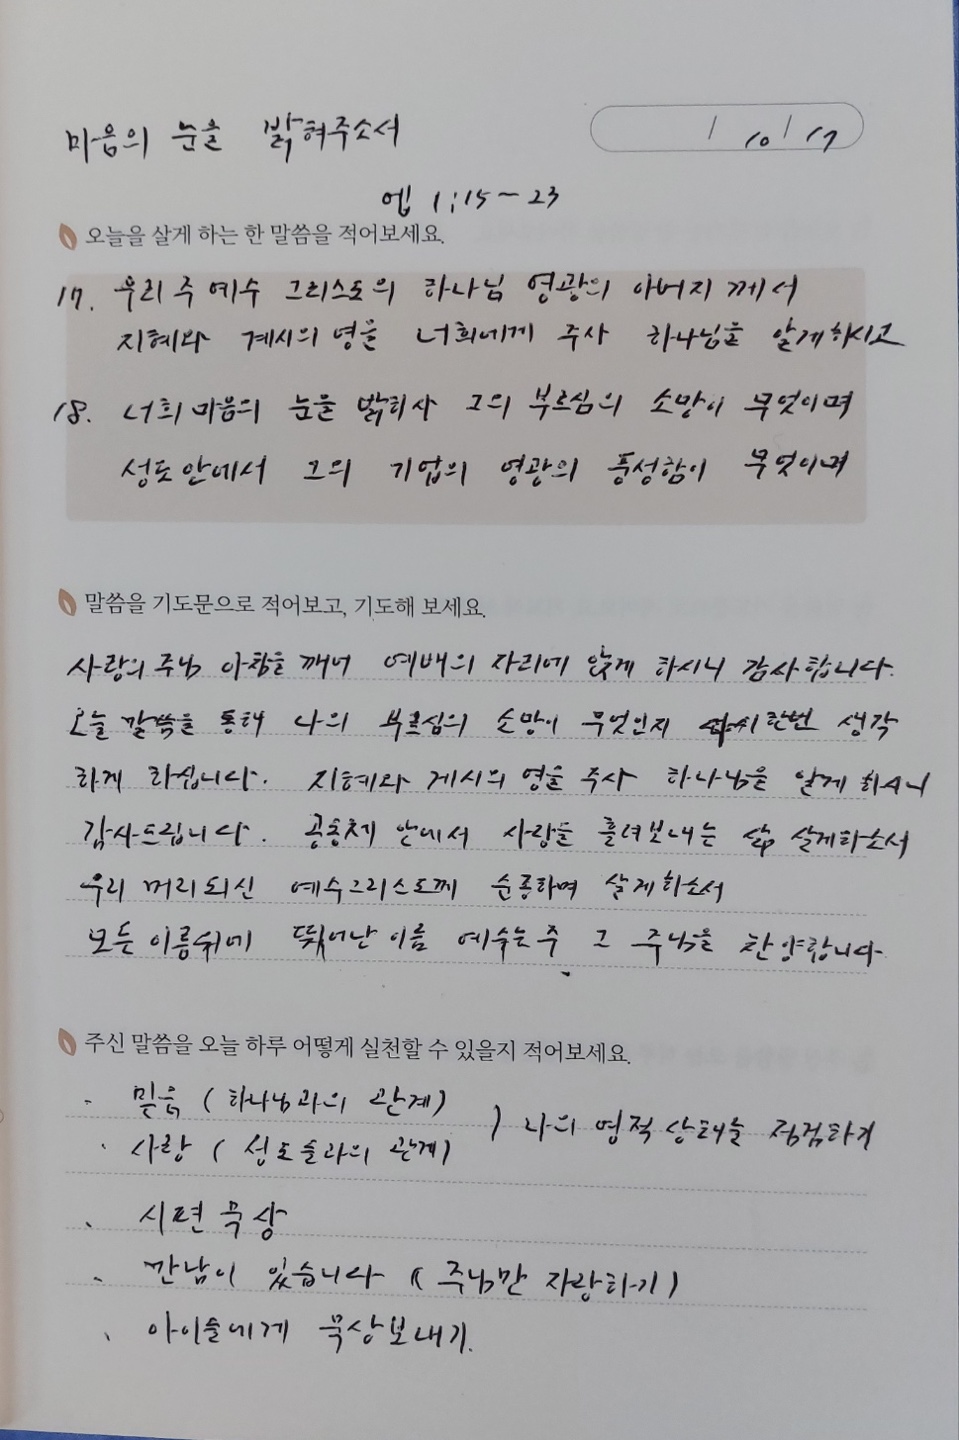 마음의 눈을 밝혀주소서
/ 10 / 17
엡 1:15~23
오늘을 살게 하는 한 말씀을 적어보세요.
17. 우리 주 예수 그리스도의 하나님 영광의 아버지께서
지혜와 계시의 영을 너희에게 주사 하나님을 알게하시고
18. 너희 마음의 눈을 밝히사 그의 부르심의 소망이 무엇이며
성도 안에서 그의 기업의 영광의 풍성함이 무엇이며
말씀을 기도문으로 적어보고, 기도해 보세요.
사랑의 주님 아침을 깨어 예배의 자리에 앉게 하시니 감사합니다.
오늘 말씀을 통해 나의 부르심의 소망이 무엇인지 다시한번 생각
하게 하십니다. 지혜와 계시의 영을 주사 하나님을 알게 하시니
감사드립니다. 공동체 안에서 사랑을 흘려보내는 삶 살게하소서
우리 머리되신 예수그리스도께 순종하며 살게하소서
모든 이름위에 뛰어난 이름 예수는 주 그 주님을 찬양합니다
주신 말씀을 오늘 하루 어떻게 실천할 수 있을지 적어보세요.
- 믿음 (하나님과의 관계)
· 사랑 (성도들과의 관계) ) 나의 영적상태를 점검하기
· 시편 묵상
· 만남이 있습니다 (주님만 자랑하기)
· 아이들에게 묵상보내기.